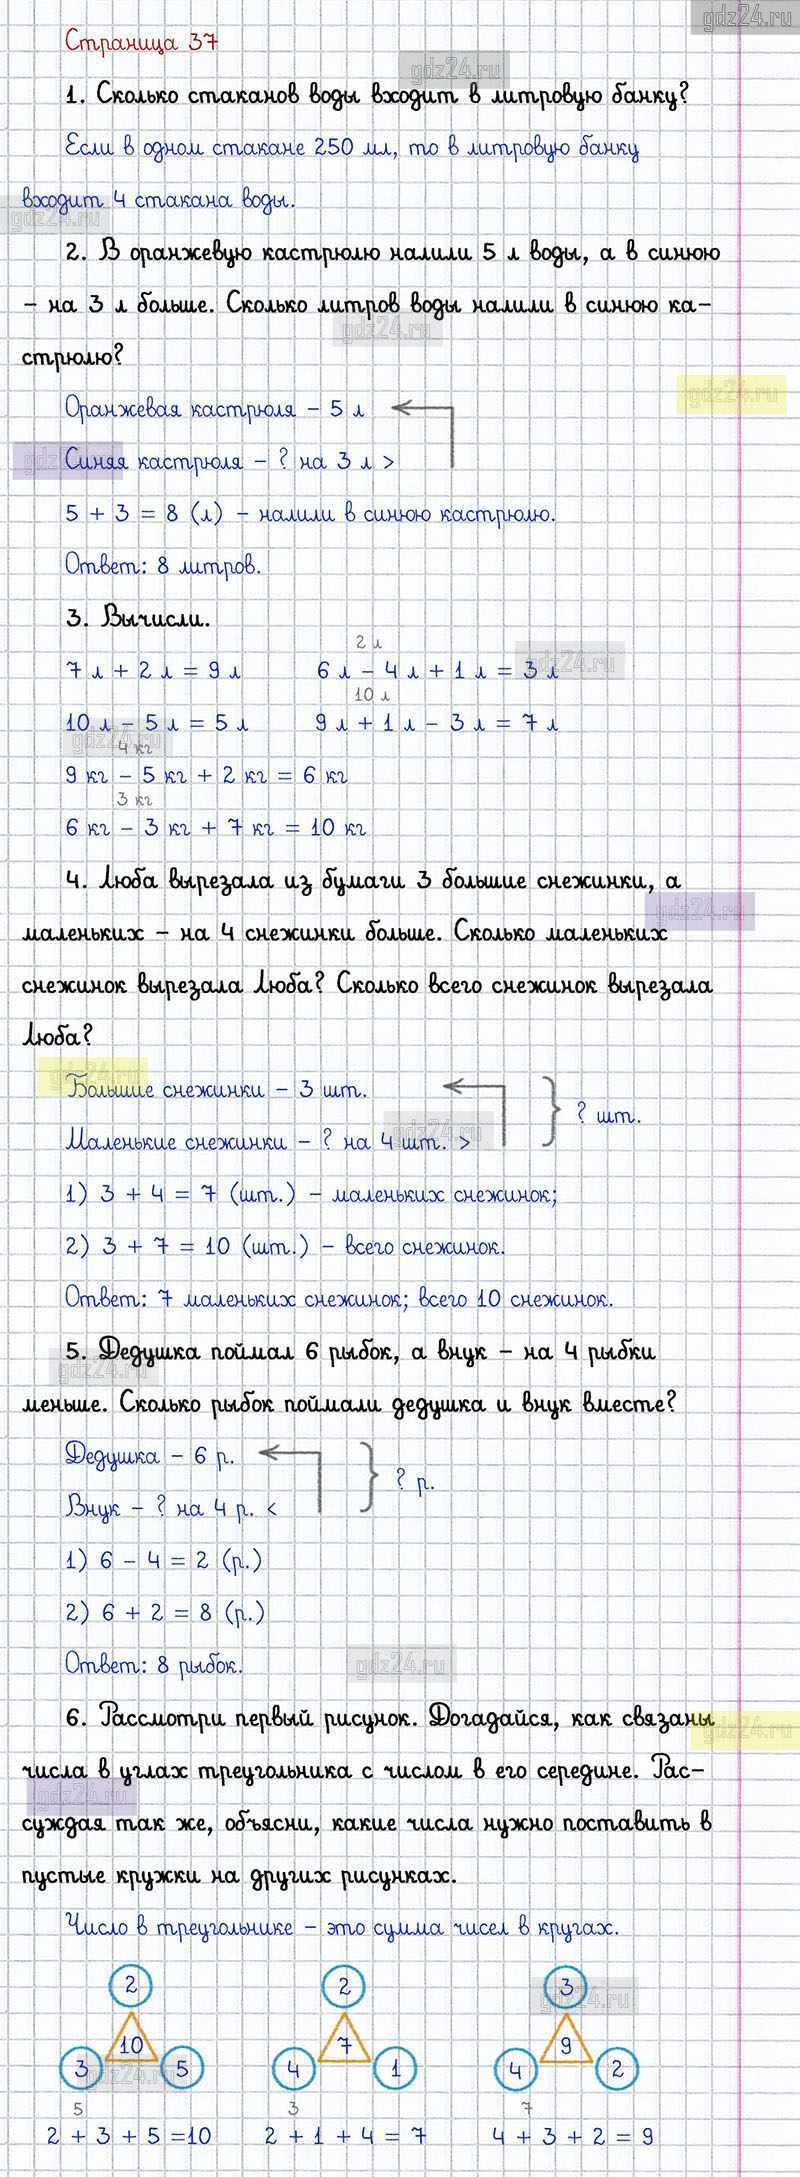 gdz24.ru
Страница 37
gdz24.ru
1. Сколько стаканов воды входит в литровую банку?
Если в одном стакане 250 мл, то в литровую банку
входит 4 стакана воды.
gdz24.ru
2. В оранжевую кастрюлю налили 5 л воды, а в синюю
– на 3 л больше. Сколько литров воды налили в синюю ка-
gdz24.ru
стрюлю?
gdz24.ru
Оранжевая кастрюля – 5 л
gdz24.ru
Синяя кастрюля – ? на 3 л >
5 + 3 = 8 (л) – налили в синюю кастрюлю.
Ответ: 8 литров.
3. Вычисли.
2 л
7 л + 2 л = 9 л 6 л – 4 л + 1 л = 3 л
gdz24.ru
10 л
10 л – 5 л = 5 л 9 л + 1 л – 3 л = 7 л
gdz24.ru
4 кг
9 кг – 5 кг + 2 кг = 6 кг
3 кг
6 кг – 3 кг + 7 кг = 10 кг
4. Люба вырезала из бумаги 3 большие снежинки, а
gdz24.ru
маленьких – на 4 снежинки больше. Сколько маленьких
снежинок вырезала Люба? Сколько всего снежинок вырезала
Люба?
gdz24.ru
Большие снежинки – 3 шт.
? шт.
gdz24.ru
Маленькие снежинки – ? на 4 шт. >
1) 3 + 4 = 7 (шт.) – маленьких снежинок;
2) 3 + 7 = 10 (шт.) – всего снежинок.
Ответ: 7 маленьких снежинок; всего 10 снежинок.
5. Дедушка поймал 6 рыбок, а внук – на 4 рыбки
gdz24.ru
меньше. Сколько рыбок поймали дедушка и внук вместе?
Дедушка – 6 р.
? р.
Внук – ? на 4 р. <
1) 6 – 4 = 2 (р.)
2) 6 + 2 = 8 (р.)
Ответ: 8 рыбок.
gdz24.ru
6. Рассмотри первый рисунок. Догадайся, как связаны
gdz24.ru
числа в углах треугольника с числом в его середине. Рас-
gdz24.ru
суждая так же, объясни, какие числа нужно поставить в
пустые кружки на других рисунках.
Число в треугольнике – это сумма чисел в кругах.
2 2 3
gdz24.ru
10 7 9
3 5 4 1 4 2
gdz24.ru
5 3 7
2 + 3 + 5 =10 2 + 1 + 4 = 7 4 + 3 + 2 = 9